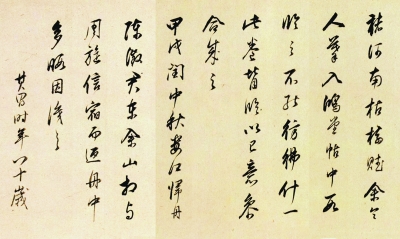 褚河南枯樹賦余令
人摹入鴻堂帖中
臨之不能彷彿什一
此卷皆臨以己意參
合成之
甲戌閏中秋婁江
陳徵君東佘山相與
周旋信宿而返舟中
多暇因識之
其昌時年八十歲